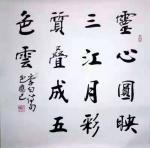 靈心圓映
三江月彩
質叠成五
色雲